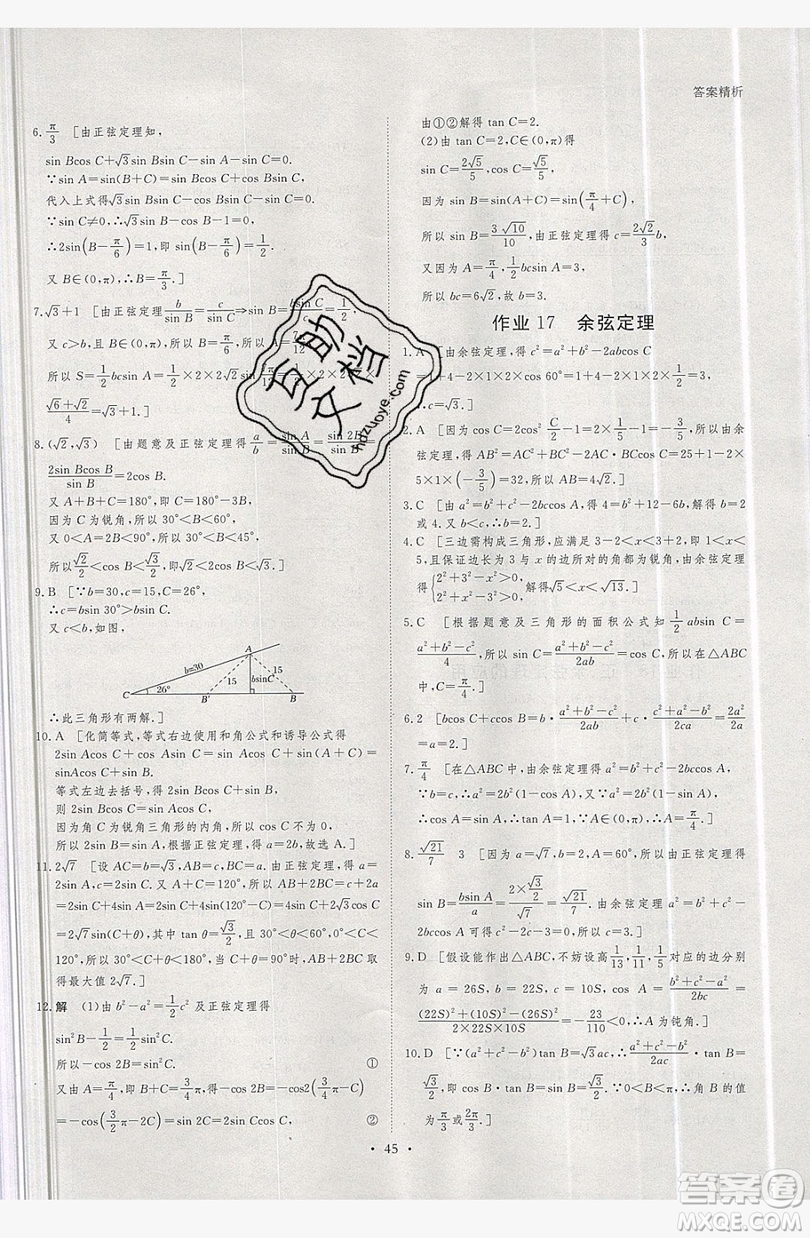 答案精析
6. π/3 [由正弦定理知,
sin Bcos C+√3sin Bsin C-sin A-sin C=0.
∵sin A=sin(B+C)=sin Bcos C+cos Bsin C
代入上式得√3sin Bsin C-cos Bsin C-sin C=0.
∵sin C≠0,∴√3sin B-cos B-1=0.
∴2sin(B-π/6)=1,即 sin(B-π/6)=1/2.
又∵B∈(0,π),∴B=π/3.]
7. √3+1 [由正弦定理 b/sin B=c/sin C⇒sin B=bsin C/c=1/2,
又 c>b,且 B∈(0,π),所以 B=π/6,所以 A=7π/12,
所以 S=1/2bcsin A=1/2×2×2√2sin 7π/12=1/2×2×2√2×
(√6+√2)/4=√3+1.]
8. (√2,√3) [由题意及正弦定理得 a/b=sin A/sin B=sin 2B/sin B=
2sin Bcos B/sin B=2cos B.
又 A+B+C=180°,即 C=180°-3B
因为 C 为锐角,所以 30°<B<60°,
又 0<A=2B<90°,所以 30°<B<45°,
所以√2/2<cos B<√3/2,所以√2<a/b<√3.]
9. B [∵b=30,c=15,C=26°,
∴c=bsin 30°>bsin C.
又 c<b,如图.
b=30
A
15
15
bsinC
C
26°
B′
B
∴此三角形有两解.]
10. A [化简等式,等式右边使用和角公式和诱导公式得
2sin Acos C+cos Asin C=sin Acos C+sin(A+C)=
sinAcos C+sin B.
等式左边去括号,得
sin B+2sin Bcos C,
则 2sin Bcos C=sin Acos C,
因为角 C 为锐角三角形的内角,所以 cos C 不为 0.
所以 2sin B=sin A,根据正弦定理,得 a=2b,故选 A.]
11. 2√7 [设 AC=b=√3,AB=c,BC=a. 由正弦定理,得
2sin A=a,2sin C=c,A+C=120°,所以 AB+2BC=c+2a
=2sin C+4sin A=2sin C+4sin(120°-C)=4sin C+2√3cos C
=2√7sin(C+θ),其中,tan θ=√3/2,且 30°<θ<60°,0°<C<
120°,30°<C+θ<180°,当 C+θ=90°时,AB+2BC 取得
最大值 2√7.]
12. 解 (1)由 b²-a²=1/2c² 及正弦定理得
sin²B-1/2=1/2sin²C.
所以-cos 2B=sin²C. ①
又由 A=π/4,即 B+C=3/4π,得-cos 2B=-cos2(3/4π-C)
=-cos(3/2π-2C)=sin 2C=2sin Ccos C, ②
由①②解得 tan C=2.
(2)由 tan C=2,C∈(0,π)得
sin C=2√5/5,cos C=√5/5.
因为 sin B=sin(A+C)=sin(π/4+C),
所以 sin B=3√10/10,由正弦定理得 c=2√2/3b,
又因为 A=π/4,1/2bcsin A=3,
所以 bc=6√2,故 b=3.
作业 17 余弦定理
1. A [由余弦定理,得 c²=a²+b²-2abcos C
=1+4-2×1×2×cos 60°=1+4-2×1×2×1/2=3,∴c=√3.]
2. A [因为 cos C=2cos²C/2-1=2×1/5-1=-3/5,所以由余
弦定理,得 AB²=AC²+BC²-2AC·BCcos C=25+1-2
×5×1×(-3/5)=32,所以 AB=4√2.]
3. C [由 a²=b²+c²-2bccos A,得 4=b²+12-6b,解得 b=2
或 4.又 b<c,∴b=2.]
4. C [三边需构成三角形,所以 1<x<
5,且保证边长为 3 与 x 的边所对的角都为锐角,由余弦定理
得{2²+3²-x²>0, 2²+x²-3²>0,解得√5<x<√13.]
5. C [根据题意及三角形的面积公式知 1/2absin C=
(a²+b²-c²)/4,所以 sin C=(a²+b²-c²)/2ab=cos C,所以在△ABC
中,C=π/4.]
6. 2 [bcos C+ccos B=b·(a²+b²-c²)/2ab+c·(a²+c²-b²)/2ac=2a²/2a
=a=2.]
7. π/4 [在△ABC 中,由余弦定理,得 a²=b²+c²-2bccos A,
∵b=c,∴a²=2b²(1-cos A),又∵a²=2b²(1-sin A),
∴cos A=sin A,∴tan A=1,∵A∈(0,π),∴A=π/4.]
8. √21/7 3 [因为 a=√7,b=2,A=60°,所以由正弦定理得
sin B=bsin A/a=(2×√3/2)/√7=√21/7. 由余弦定理 a²=b²+c²-
2bccos A 可得 c²-2c-3=0,所以 c=3.]
9. D [假设能作出△ABC,不妨设高 1/13,1/11,1/5对应的边分别
为 a=26S,b=22S,c=10S,cos A=(b²+c²-a²)/2bc=
((22S)²+(10S)²-(26S)²)/(2×22S×10S)=-23/110<0,∴A 为钝角.]
10. D [∵(a²+c²-b²)tan B=√3ac,∴(a²+c²-b²)/2ac·tan B=
√3/2,即 cos B·tan B=sin B=√3/2. ∵0<B<π,∴角 B 的值
为 π/3 或 2π/3.]
• 45 •
互助
文档
hdzuoye.com
答案圈
MXQE.COM